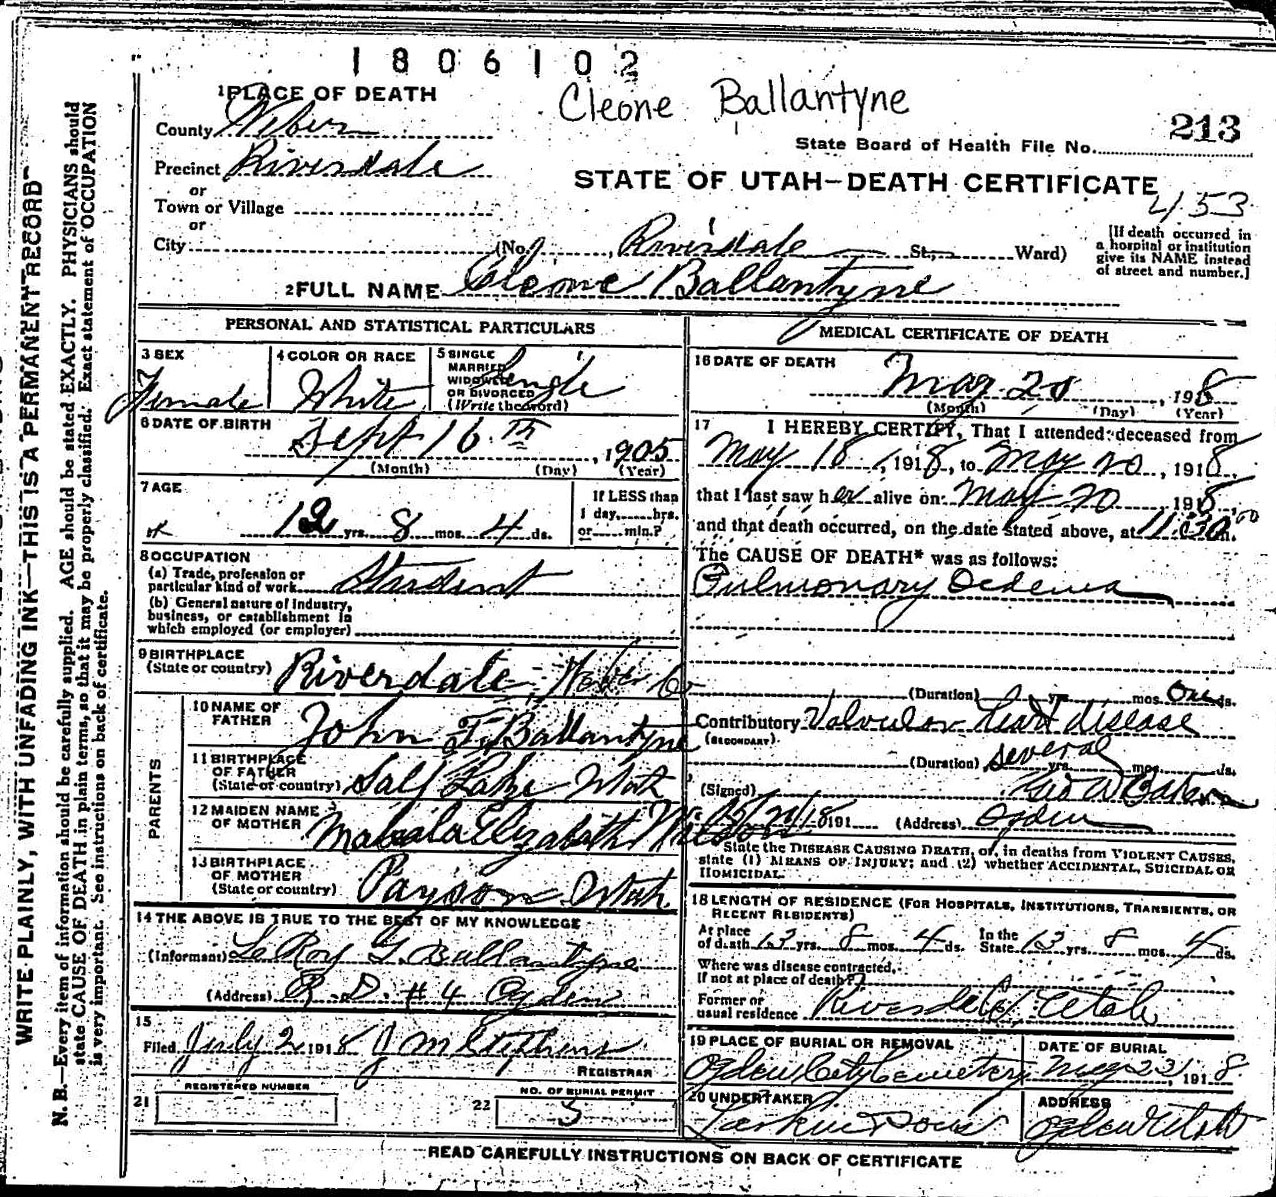 1806102
Cleone Ballantyne
1 PLACE OF DEATH
County Weber
213
State Board of Health File No.
Precinct Riverdale
STATE OF UTAH—DEATH CERTIFICATE
or
Town or Village
453
or
City (No. , Riverdale St; Ward)
[If death occurred in
a hospital or institution
give its NAME instead
of street and number.]
2 FULL NAME Cleone Ballantyne
PERSONAL AND STATISTICAL PARTICULARS
3 SEX
Female
4 COLOR OR RACE
White
5 SINGLE
MARRIED
WIDOWED
OR DIVORCED
(Write the word)
Single
6 DATE OF BIRTH
Sept 16th, 1905
(Month) (Day) (Year)
7 AGE
12 yrs. 8 mos. 4 ds.
If LESS than
1 day, hrs.
or min.?
8 OCCUPATION
(a) Trade, profession or
particular kind of work Student
(b) General nature of Industry,
business, or establishment in
which employed (or employer)
9 BIRTHPLACE
(State or country) Riverdale, Weber Co
PARENTS
10 NAME OF
FATHER John T. Ballantyne
11 BIRTHPLACE
OF FATHER
(State or country) Salt Lake Utah
12 MAIDEN NAME
OF MOTHER Elizabeth
13 BIRTHPLACE
OF MOTHER
(State or country) Payson Utah
14 THE ABOVE IS TRUE TO THE BEST OF MY KNOWLEDGE
(Informant) LeRoy G. Ballantyne
(Address) R.D. #4 Ogden
15
Filed July 2 1918 J M Stephens
REGISTRAR
REGISTERED NUMBER
21
NO. OF BURIAL PERMIT
22
MEDICAL CERTIFICATE OF DEATH
16 DATE OF DEATH
May 20, 1918
(Month) (Day) (Year)
17 I HEREBY CERTIFY, That I attended deceased from
May 18, 1918, to May 20, 1918,
that I last saw her alive on May 20 1918,
and that death occurred, on the date stated above, at m.
The CAUSE OF DEATH* was as follows:
Pulmonary Oedema
(Duration) yrs. mos. One ds.
Contributory Valvular heart disease
(SECONDARY)
(Duration) several yrs. mos. ds.
(Signed)
191 (Address) Ogden
State the DISEASE CAUSING DEATH, or, in deaths from VIOLENT CAUSES,
state (1) MEANS OF INJURY; and (2) whether ACCIDENTAL, SUICIDAL OR
HOMICIDAL.
18 LENGTH OF RESIDENCE (FOR HOSPITALS, INSTITUTIONS, TRANSIENTS, OR
RECENT RESIDENTS)
At place
of death 13 yrs. 8 mos. 4 ds. In the
State 13 yrs. 8 mos. 4 ds.
Where was disease contracted,
If not at place of death?
Former or
usual residence Riverdale, Utah
19 PLACE OF BURIAL OR REMOVAL
Ogden City Cemetery
DATE OF BURIAL
May 23, 1918
20 UNDERTAKER
Larkin & Sons
ADDRESS
Ogden Utah
READ CAREFULLY INSTRUCTIONS ON BACK OF CERTIFICATE
WRITE PLAINLY, WITH UNFADING INK—THIS IS A PERMANENT RECORD
N. B.—Every item of information should be carefully supplied. AGE should be stated EXACTLY. PHYSICIANS should
state CAUSE OF DEATH in plain terms, so that it may be properly classified. Exact statement of OCCUPATION
is very important. See instructions on back of certificate.